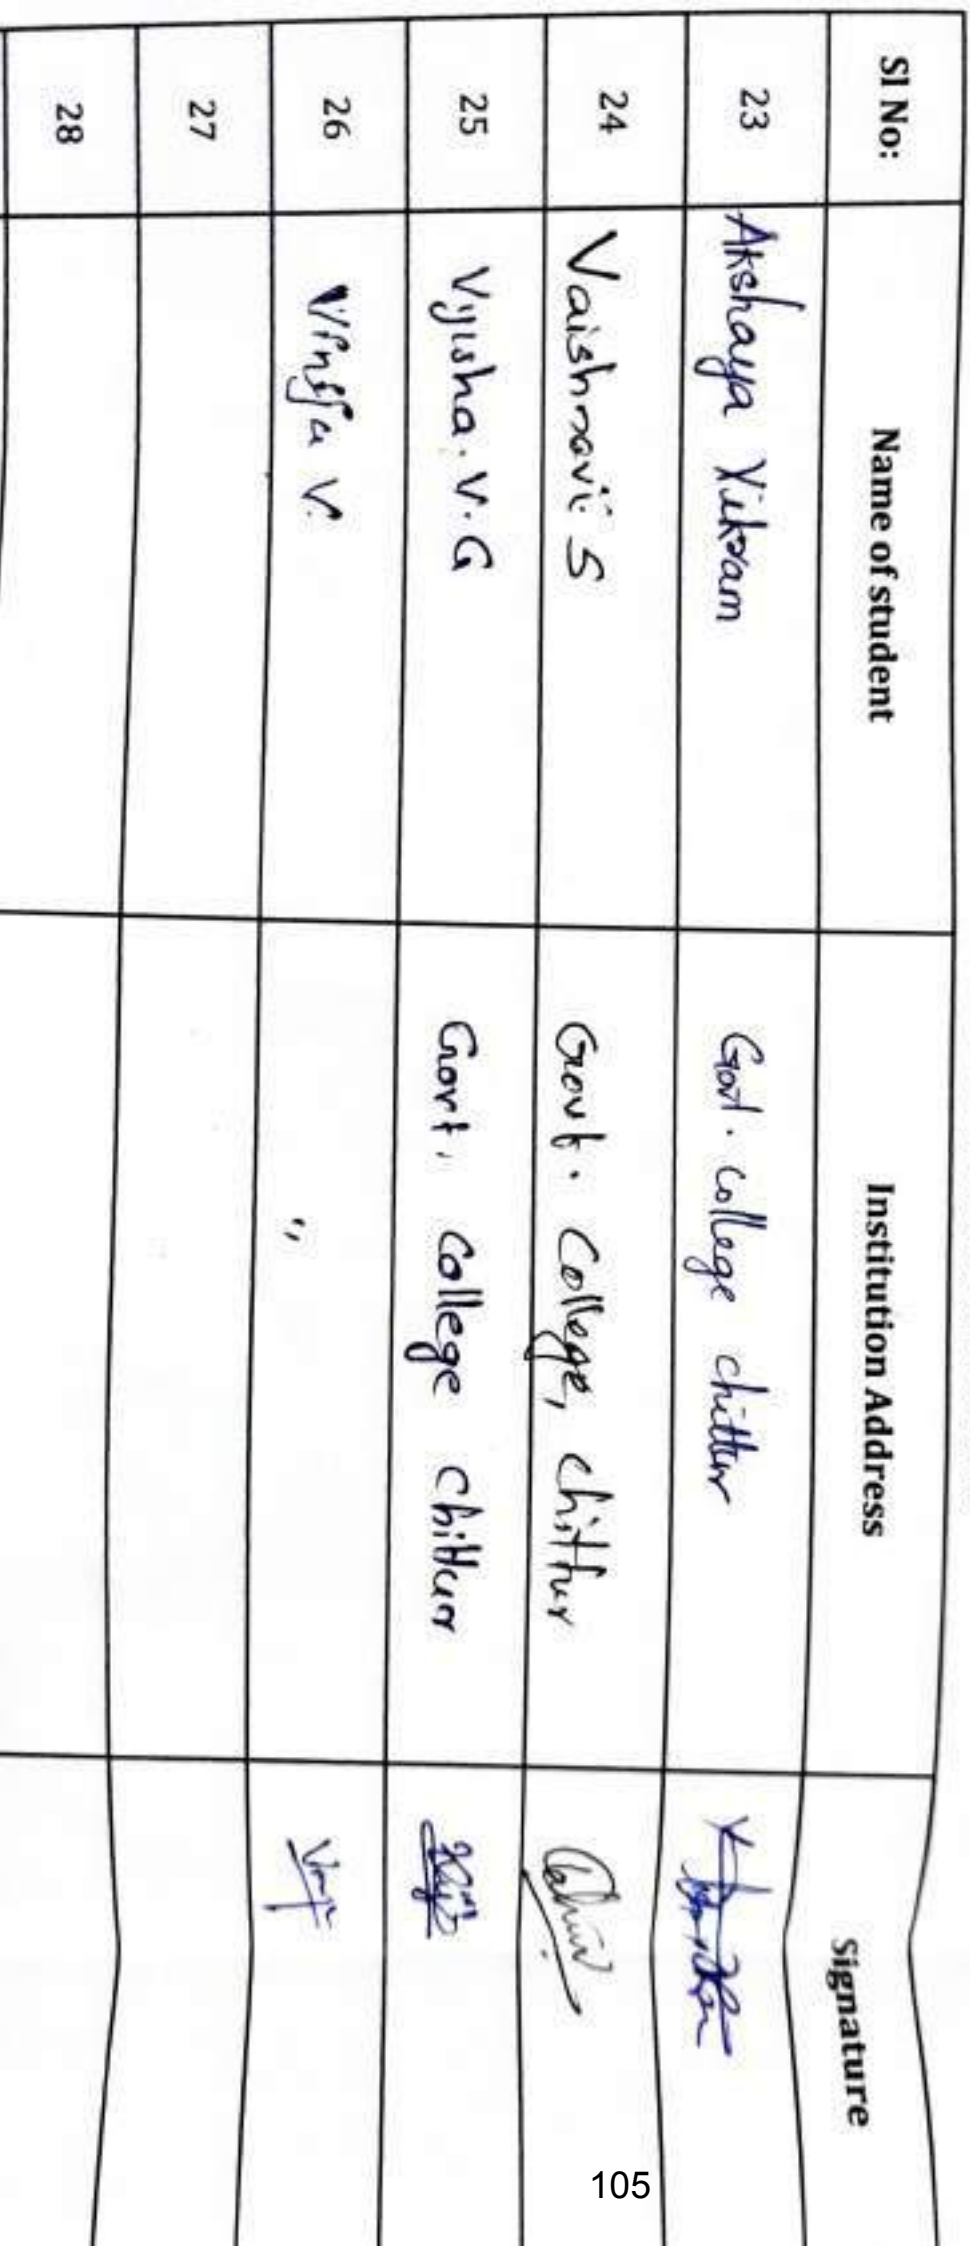 Sl No: Name of student Institution Address Signature
23 Akshaya Vikram Govt. College chittur
24 Vaishnavi S Govt. College, Chittur
25 Vijisha. V. G Govt. College Chittur
26 V. "
27
28
105